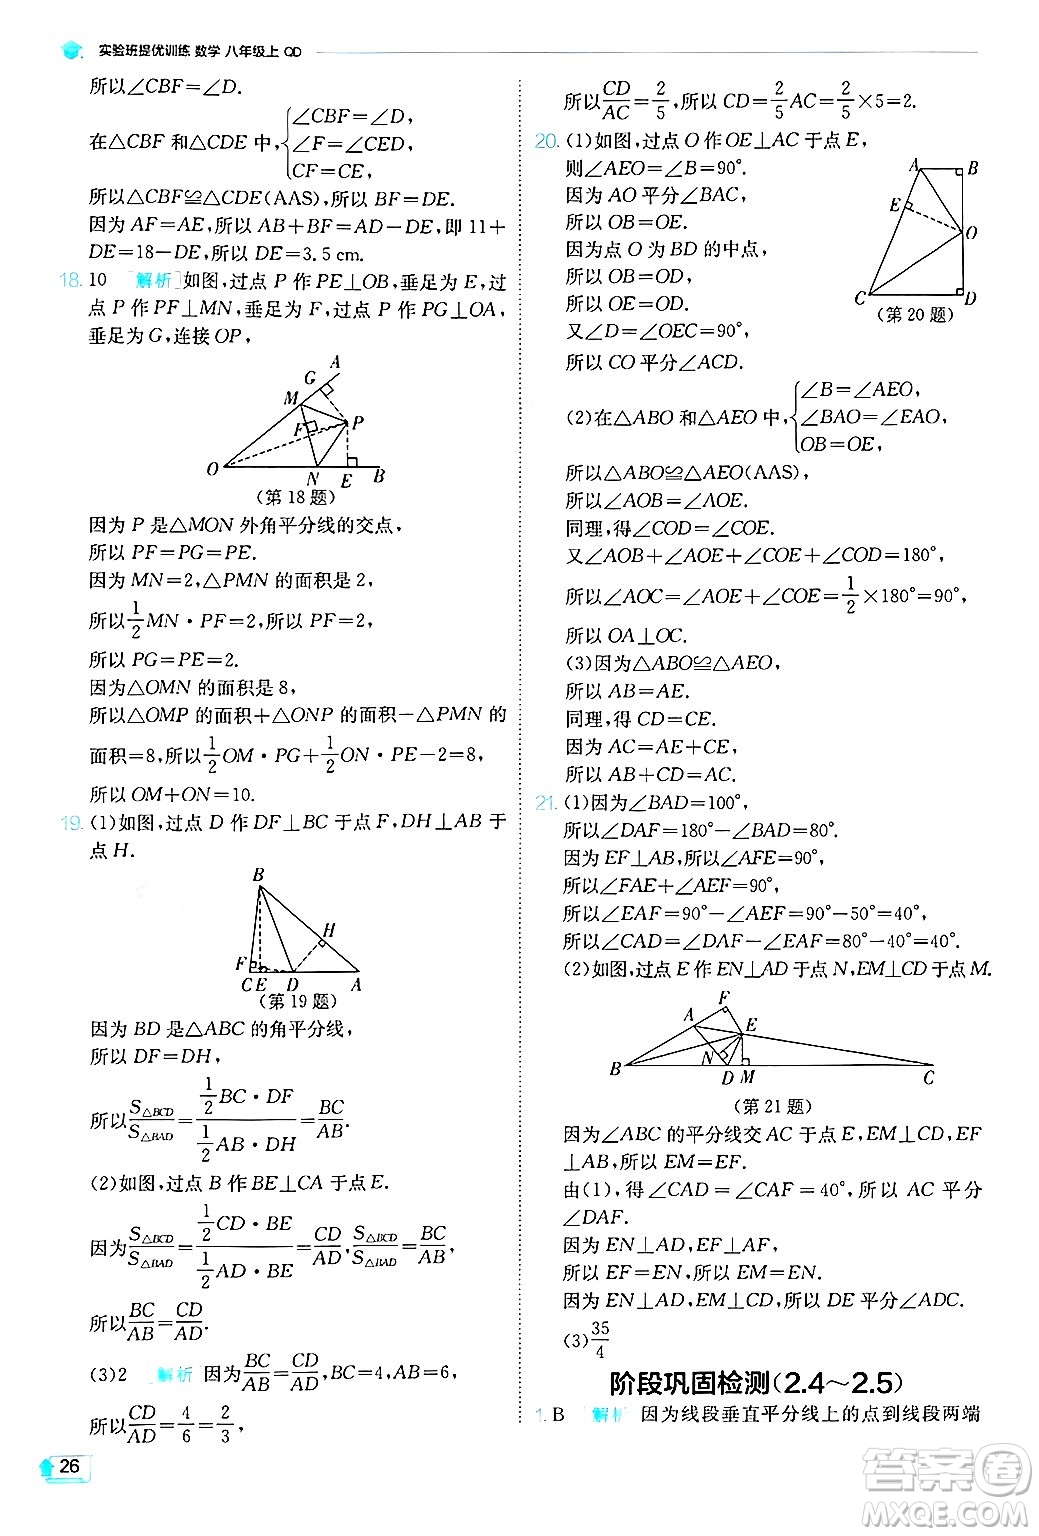 实验班提优训练 数学 八年级上 QD
所以∠CBF=∠D.
在△CBF 和△CDE 中,{∠CBF=∠D,
∠F=∠CED,
CF=CE,
所以△CBF≌△CDE(AAS),所以 BF=DE.
因为 AF=AE,所以 AB+BF=AD-DE,即 11+
DE=18-DE,所以 DE=3.5 cm.
18. 10 [解析]如图,过点 P 作 PE⊥OB,垂足为 E,过
点 P 作 PF⊥MN,垂足为 F,过点 P 作 PG⊥OA,
垂足为 G,连接 OP,
A
G
M
F
P
O
N E B
(第 18 题)
因为 P 是△MON 外角平分线的交点,
所以 PF=PG=PE.
因为 MN=2,△PMN 的面积是 2,
所以1/2MN·PF=2,所以 PF=2,
所以 PG=PE=2.
因为△OMN 的面积是 8,
所以△OMP 的面积+△ONP 的面积-△PMN 的
面积=8,所以1/2OM·PG+1/2ON·PE-2=8,
所以 OM+ON=10.
19. (1)如图,过点 D 作 DF⊥BC 于点 F,DH⊥AB 于
点 H.
B
H
F
C E D A
(第 19 题)
因为 BD 是△ABC 的角平分线,
所以 DF=DH,
所以S△BCD/S△BAD=(1/2BC·DF)/(1/2AB·DH)=BC/AB.
(2)如图,过点 B 作 BE⊥CA 于点 E.
因为S△BCD/S△BAD=(1/2CD·BE)/(1/2AD·BE)=CD/AD,S△BCD/S△BAD=BC/AB,
所以BC/AB=CD/AD.
(3)2 [解析]因为BC/AB=CD/AD,BC=4,AB=6,
所以CD/AD=4/6=2/3,
所以CD/AC=2/5,所以 CD=2/5AC=2/5×5=2.
20. (1)如图,过点 O 作 OE⊥AC 于点 E,
则∠AEO=∠B=90°.
因为 AO 平分∠BAC,
所以 OB=OE.
因为点 O 为 BD 的中点,
所以 OB=OD,
所以 OE=OD.
又∠D=∠OEC=90°,
所以 CO 平分∠ACD.
A B
E
O
C D
(第 20 题)
(2)在△ABO 和△AEO 中,{∠B=∠AEO,
∠BAO=∠EAO,
OB=OE,
所以△ABO≌△AEO(AAS),
所以∠AOB=∠AOE.
同理,得∠COD=∠COE.
又∠AOB+∠AOE+∠COE+∠COD=180°,
所以∠AOC=∠AOE+∠COE=1/2×180°=90°,
所以 OA⊥OC.
(3)因为△ABO≌△AEO,
所以 AB=AE.
同理,得 CD=CE.
因为 AC=AE+CE,
所以 AB+CD=AC.
21. (1)因为∠BAD=100°,
所以∠DAF=180°-∠BAD=80°.
因为 EF⊥AB,所以∠AFE=90°,
所以∠FAE+∠AEF=90°,
所以∠EAF=90°-∠AEF=90°-50°=40°,
所以∠CAD=∠DAF-∠EAF=80°-40°=40°.
(2)如图,过点 E 作 EN⊥AD 于点 N,EM⊥CD 于点 M.
F
A
E
N
B D M C
(第 21 题)
因为∠ABC 的平分线交 AC 于点 E,EM⊥CD,EF
⊥AB,所以 EM=EF.
由(1),得∠CAD=∠CAF=40°,所以 AC 平分
∠DAF.
因为 EN⊥AD,EF⊥AF,
所以 EF=EN,所以 EM=EN.
因为 EN⊥AD,EM⊥CD,所以 DE 平分∠ADC.
(3)35/4
阶段巩固检测(2.4～2.5)
1. B [解析]因为线段垂直平分线上的点到线段两端
26
答案圈
MXQE.COM